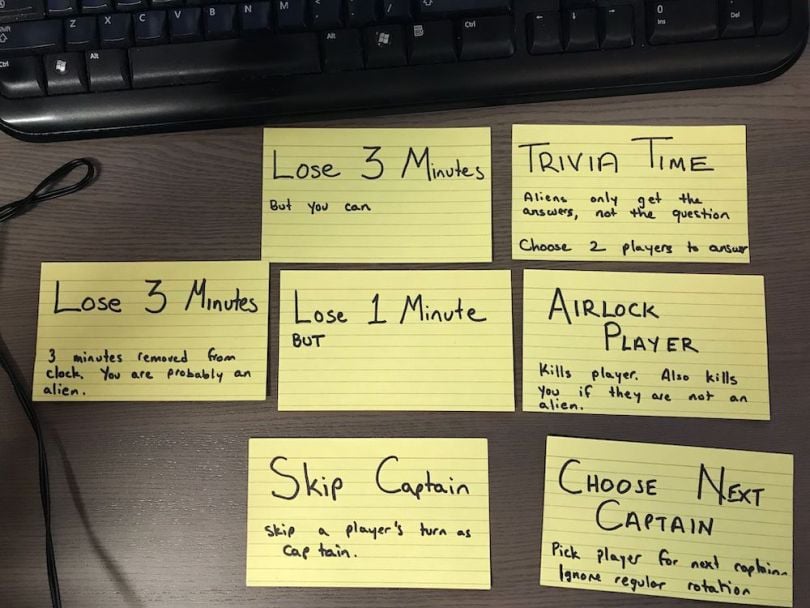 Z X C V B N M < > ?
Ctrl Alt Alt Ctrl
0
Ins
.
Del
Lose 3 Minutes
But you can
TRIVIA TIME
Aliens only get the
answers, not the question
Choose 2 players to answer
Lose 3 Minutes
3 minutes removed from
clock. You are probably an
alien.
Lose 1 Minute
BUT
AIRLOCK
PLAYER
Kills player. Also kills
you if they are not an
alien.
Skip Captain
Skip a player's turn as
Cap tain.
CHOOSE NEXT
CAPTAIN
Pick player for next captain.
Ignore regular rotation